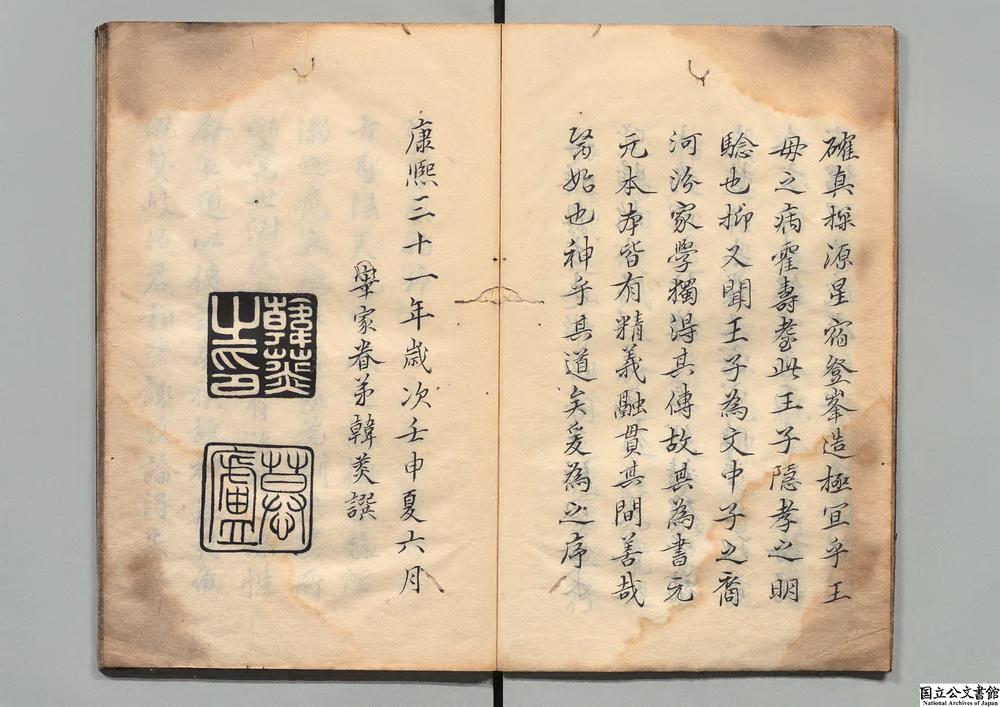 確真探源星宿登峯造極宜乎王
母之病霍壽登此王子隱孝之明
驗也抑又聞王子為文中子之裔
河汾家學獨得其傳故其為書元
元本本皆有精義融貫其間善哉
醫始也神乎其道矣爰為之序
康熙三十一年歲次壬申夏六月
年家眷弟韓菼譔
韓菼之印
慕廬
国立公文書館
National Archives of Japan